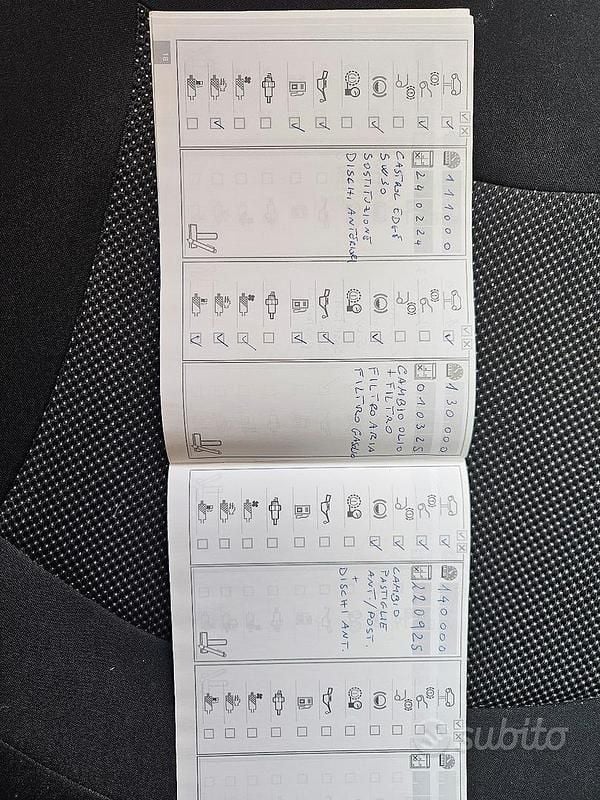 18
111000
240224
CASTROL EDGE
5W30
SOSTITUZIONE
DISCHI ANTERIORI
130000
010325
CAMBIO OLIO
+ FILTRO
FILTRO ARIA
FILTRO GASOLIO
140000
220925
CAMBIO
PASTIGLIE
ANT/POST.
+
DISCHI ANT.
subito